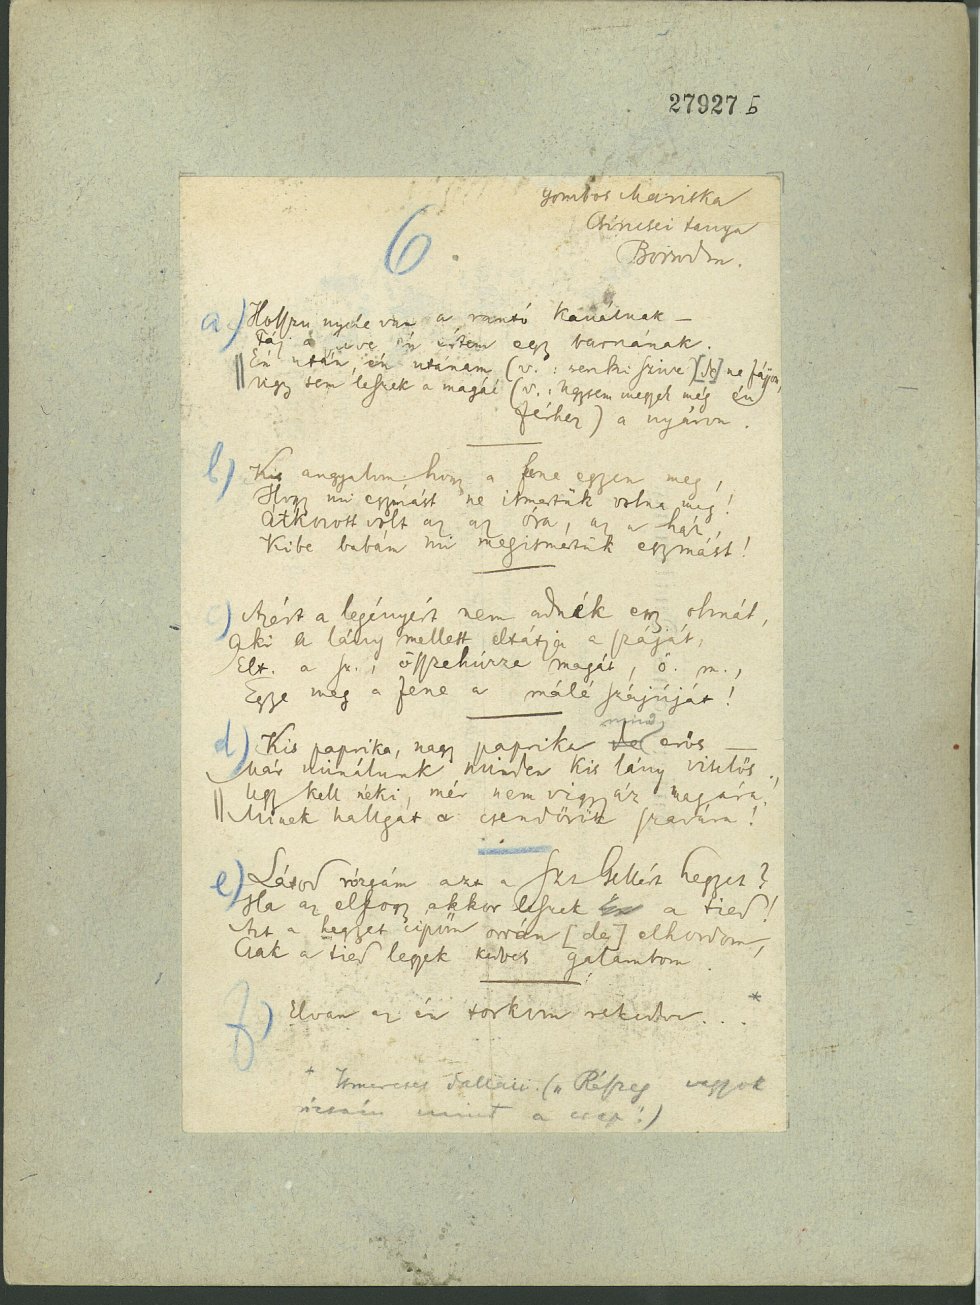 27927 b
Gombos Mariska
Csincsei tanya
Borsodm.
6
a) Hosszu nyele van a rántó kanálnak –
Fáj a szive én értem egy barnának.
Én után, én utánam (v. : senki szive [de] ne fájjon,
Ugy sem leszek a magáé (v. : Ugysem megyek még én
férhez) a nyáron.
b) Kis angyalom hogy a fene egyen meg,
Hogy mi egymást ne ismertük volna meg!
Átkozott volt az az óra, az a ház,
Kibe babám mi megismertük egymást!
c) Azért a legényért nem adnék egy almát,
Aki a lány mellett eltátja a száját,
Elt. a sz., összehúzza magát, ö. m.,
Egye meg a fene a málé szájúját!
d) Kis paprika, nagy paprika de mind erős –
Már minálunk minden kis lány viselős.,
Ugy kell néki, mér nem vigyáz magára!
Minek hallgat a csendőrök szavára!
e) Látod rózsám azt a Szt Gellért hegyet?
Ha az elfogy akkor leszek én a tied!
Azt a hegyet cipőm orrán [de] elhordom,
Csak a tied legyek kedves galambom.
f) Elvan az én torkom rekedve... *
* Ismeretes dallam. („Részeg vagyok
rózsám mint a csap!)